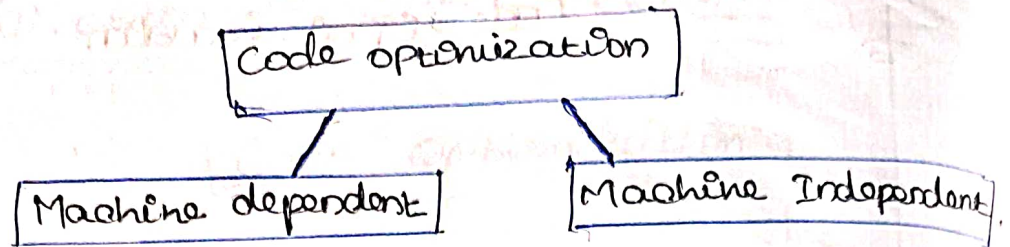 Code optimization
Machine dependent
Machine Independent